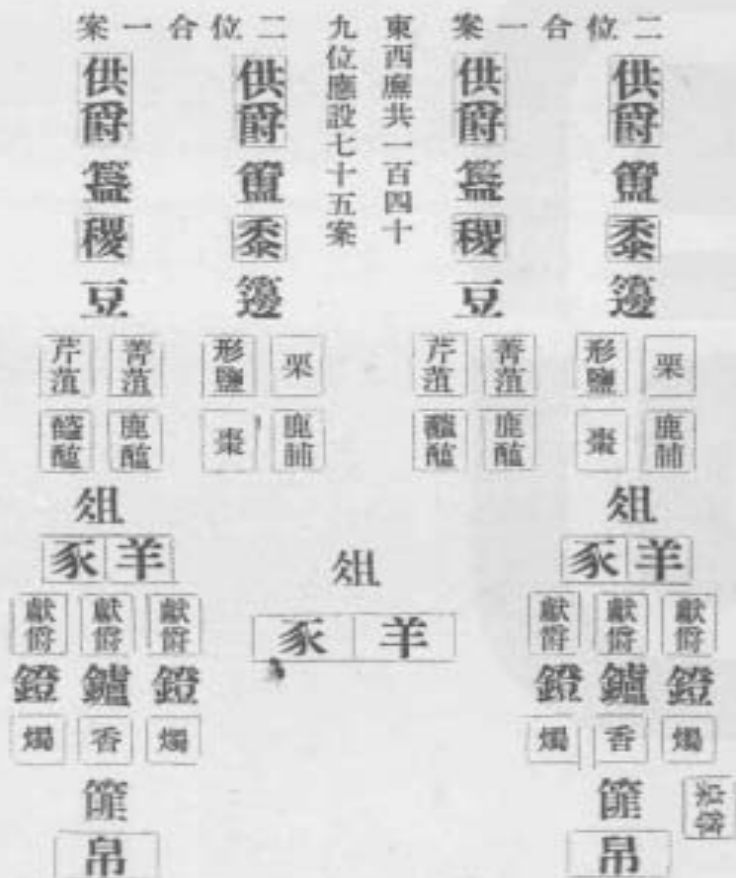 二位合一案
供爵 供爵
簠 簋
黍 稷
籩 豆
栗 形鹽 菁菹 芹菹
鹿脯 棗 鹿醢 醓醢
俎
羊 豕
獻爵 獻爵 獻爵
鐙 鑪 鐙
燭 香 燭
篚
帛
祝
東西廡共一百四十
九位應設七十五案
俎
羊 豕
二位合一案
供爵 供爵
簠 簋
黍 稷
籩 豆
栗 形鹽 菁菹 芹菹
鹿脯 棗 鹿醢 醓醢
俎
羊 豕
獻爵 獻爵 獻爵
鐙 鑪 鐙
燭 香 燭
篚
帛